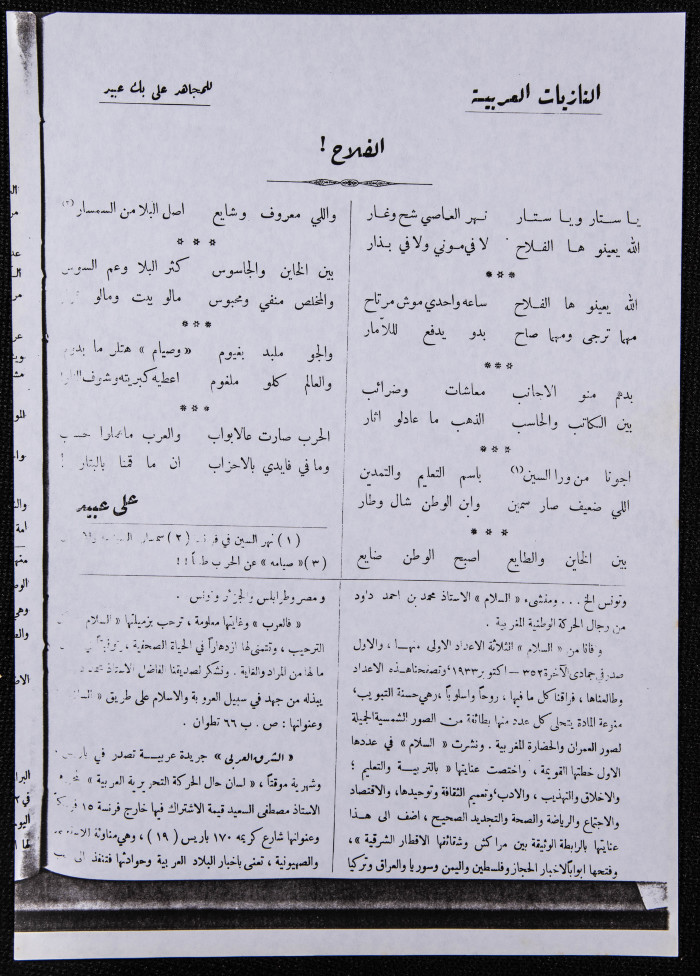 النازيات العربية
للمجاهد علي بك عبيد
الفلاح !
يا ستار ويا ستار نهر العاصي شح وغار
الله يعينو ها الفلاح لا في موني ولا في بذار
***
الله يعينو ها الفلاح ساعه واحدي موش مرتاح
مهما ترجى ومهما صاح بدو يدفع للدمار
***
بدهم منو الاجانب معاشات وضرائب
بين الكاتب والحاسب الذهب ما عادلو اثار
***
اجونا من ورا السين (١) باسم التعليم والتمدين
اللي ضعيف صار سمين وابن الوطن شال وطار
***
بين الخاين والطايع اصبح الوطن ضايع
واللي معروف وشايع اصل البلا من السمسار (٢)
***
بين الخاين والجاسوس كثر البلا وعم السوس
والمخلص منفي ومحبوس مالو بيت ومالو
***
والجو ملبد بغيوم «وصيام» هتلر ما بدوم
والعالم كلو ملغوم اعطيه كبريته وشوف
***
الحرب صارت عالابواب والعرب ما عملوا حساب
وما في فايدي بالاحزاب ان ما قمنا بالبتار !
علي عبيد
(١) نهر السين في (٢) سمسار
(٣) «صيامه» عن الحرب طبعاً !!
وتونس الخ . . . ومنشىء «السلام» الاستاذ محمد بن احمد داود
من رجال الحركة الوطنية المغربية .
وافانا من «السلام» الثلاثة الاعداد الاولى منها ، والاول
صدر في جمادى الآخرة ٣٥٢ - اكتوبر ١٩٣٣ وتصفحنا هذه الاعداد
وطالعناها ، فراقنا كل ما فيها ، روحاً واسلوباً ، رهي حسنة التبويب ،
منوعة المادة يتحلى كل عدد منها بطائفة من الصور الشمسية الجميلة
لصور العمران والحضارة المغربية . ونشرت «السلام» في عددها
الاول خطتها القويمة ، واختصت عنايتها «بالتربية والتعليم ؛
والاخلاق والتهذيب ، والادب ، وتعميم الثقافة وتوحيدها ، والاقتصاد
والاجتماع والرياضة والصحة والتجديد الصحيح ، اضف الى هذا
عنايتها بالرابطة الوثيقة بين مراكش وشقائقها الاقطار الشرقية» ،
وفتحها ابواباً لاخبار الحجاز وفلسطين واليمن وسوريا والعراق وتركيا
ومصر وطرابلس والجزائر وتونس .
« فالعرب » وغايتها معلومة ، ترحب بزميلتها «السلام
الترحيب ، وتتمنى لها ازدهاراً في الحياة الصحفية ،
ما لها من المراد والغاية . ونشكر لصديقنا الفاضل الاستاذ
يبذله من جهد في سبيل العروبة والاسلام على طريق
وعنوانها : ص . ب ٦٦ تطوان .
«الشرق العربي» جريدة عربية تصدر في باريس
وشهرية موقتاً ، « لسان حال الحركة التحريرية العربية »
الاستاذ مصطفى السعيد قيمة الاشتراك فيها خارج فرنسة ١٥
وعنوانها شارع كريمه ١٧٠ باريس (١٩) ، وهي مناوئة
والصهيونية ، تعنى باخبار البلاد العربية وحوادثها فتنفذ الى